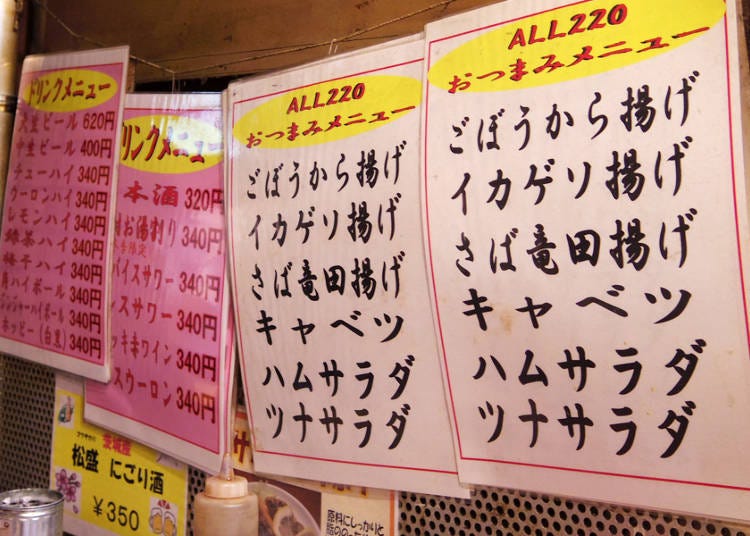 ドリンクメニュー
大生ビール 620円
中生ビール 400円
チューハイ 340円
ウーロンハイ 340円
レモンハイ 340円
緑茶ハイ 340円
梅干ハイ 340円
角ハイボール 340円
ジンジャーハイボール 340円
ホッピー(白黒) 340円
ドリンクメニュー
本酒 320円
お湯割り 340円
バイスサワー 340円
サワー 340円
赤ワイン 340円
ウーロン 340円
ALL220
おつまみメニュー
ごぼうから揚げ
イカゲソ揚げ
さば竜田揚げ
キャベツ
ハムサラダ
ツナサラダ
ALL220
おつまみメニュー
ごぼうから揚げ
イカゲソ揚げ
さば竜田揚げ
キャベツ
ハムサラダ
ツナサラダ
茨城産
松盛 にごり酒
¥350
原料にしっかりと